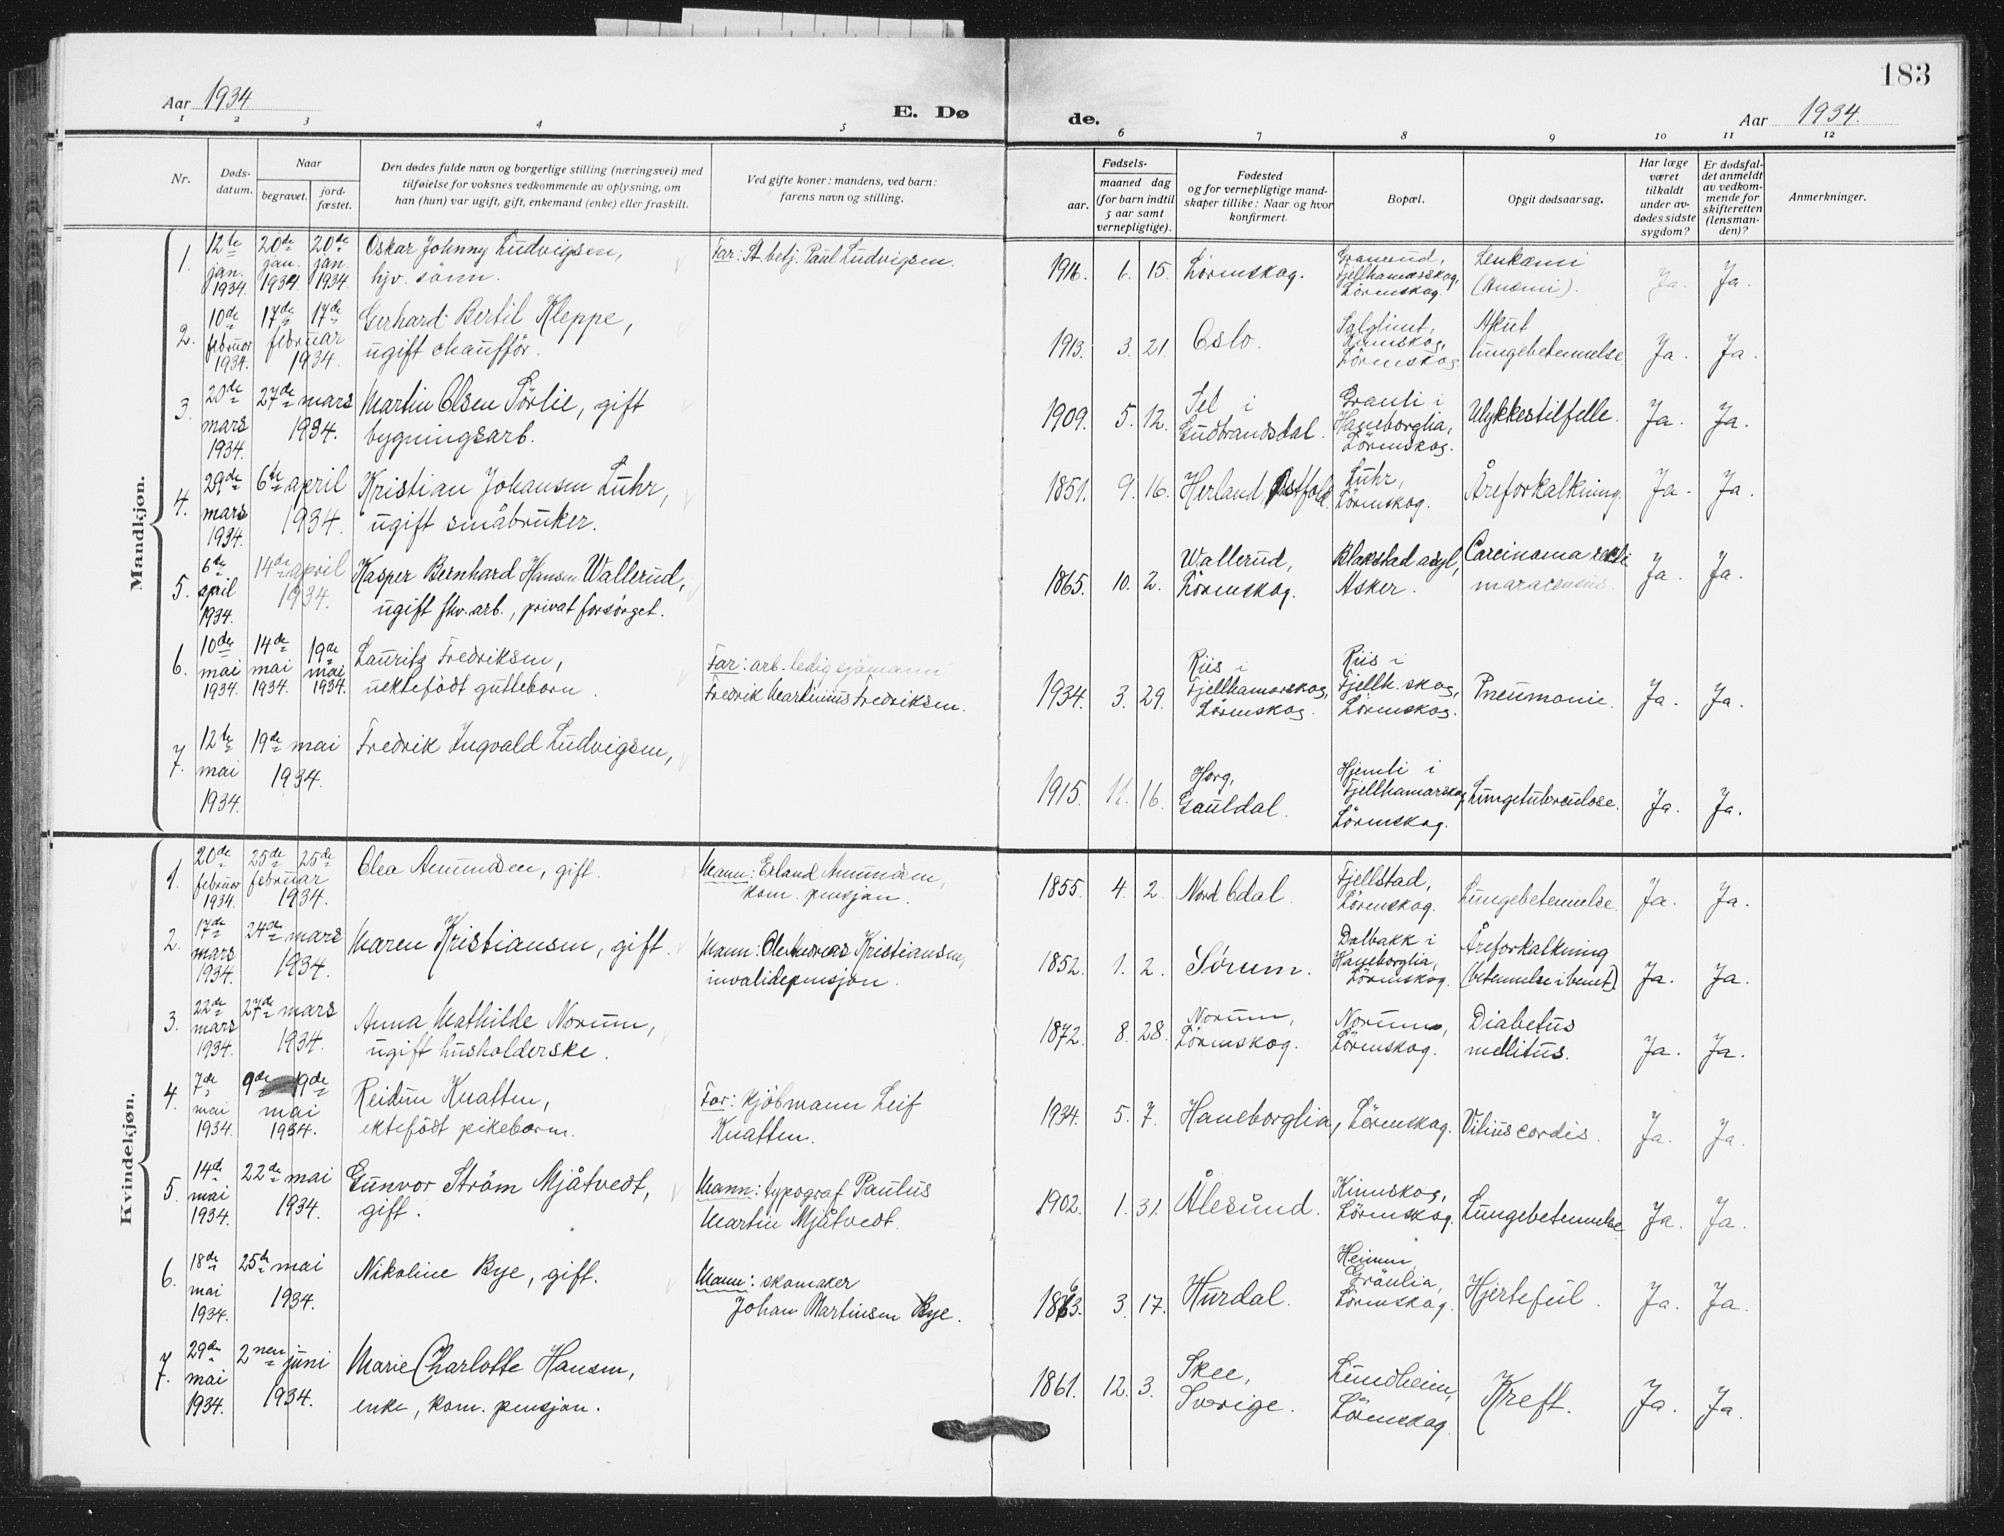 183
Aar 1934
E. Dø
de.
Aar 1934.
1 2 3 4 5 6 7 8 9 10 11 12
Nr.
Døds-
datum.
Naar
begravet.
jord-
fæstet.
Den dødes fulde navn og borgerlige stilling (næringsvei) med
tilføielse for voksnes vedkommende av oplysning, om
han (hun) var ugift, gift, enkemand (enke) eller fraskilt.
Ved gifte koner: mandens, ved barn:
farens navn og stilling.
Fødsels-
aar.
maaned dag
(for barn indtil
5 aar samt
vernepligtige).
Fødested
og for vernepligtige mand-
skaper tillike: Naar og hvor
konfirmert.
Bopæl.
Opgit dødsaarsag.
Har læge
været
tilkaldt
under av-
dødes sidste
sygdom?
Er dødsfal-
det anmeldt
av vedkom-
mende for
skifteretten
(lensman-
den)?
Anmerkninger.
Mandkjøn.
1.
12te
jan.
1934.
20de
jan.
1934
20de
jan.
1934.
Oskar Johnny Ludvigsen,
hjv. sønn.
Far: St. betj. Paul Ludvigsen.
1916. 6. 15.
Lørenskog.
Granerud,
Fjellhamarskog,
Lørenskog.
Leukemi
(Anemi).
Ja. Ja.
2.
10de
februar
1934.
17de 17de
februar
1934.
Gerhard Bertil Kleppe,
ugift chaufför.
1913. 3. 21.
Oslo.
Solglimt,
Kinnskog,
Lörenskog.
Akut
lungebetennelse.
Ja. Ja.
3.
20de
mars
1934.
27de mars
1934.
Martin Olsen Törlie, gift
bygningsarb.
1909. 5. 12.
Sel i
Gudbrandsdal.
Granli i
Haneborglia,
Lörenskog.
Ulykkestilfelle.
Ja. Ja.
4.
29de
mars
1934.
6te april
1934.
Kristian Johansen Luhr,
ugift småbruker.
1851. 9. 16.
Herland Østfold.
Luhr,
Lörenskog.
Åreforkalkning.
Ja. Ja.
5.
6de
april
1934.
14de april
1934.
Kasper Bernhard Hansen Wallerud,
ugift fhv. arb., privat forsörget.
1865. 10. 2.
Wallerud,
Lörenskog.
Blakstad asyl,
Asker.
Carcinoma recti
Ja. Ja.
6.
10de
mai
1934.
14de
mai
1934.
19de
mai
1934.
Lauritz Fredriksen,
uektefödt gutteborn.
Far: arb. ledig sjömann
Fredrik Martinius Fredriksen.
1934. 3. 29.
Riis i
Fjellhamarskog,
Lörenskog.
Riis i
Fjellh. skog,
Lörenskog.
Pneumonie.
Ja. Ja.
7.
12te
mai
1934.
19de mai
1934.
Fredrik Ingvald Ludvigsen,
1915. 11. 16.
Horg,
Gauldal.
Hjemli i
Fjellhamarskog,
Lörenskog.
Lungetuberculose.
Ja. Ja.
Kvindekjøn.
1.
20de
februar
1934.
25de 25de
februar
1934.
Olea Amundsen, gift.
Mann: Erland Amundsen,
kom. pensjon.
1855. 4. 2.
Nord Odal.
Fjellstad,
Lörenskog.
Lungebetennelse.
Ja. Ja.
2.
17de
mars
1934.
24de mars
1934.
Maren Kristiansen, gift.
Mann: Ole Andreas Kristiansen,
invalidepensjon.
1852. 1. 2.
Sörum.
Dalbakk i
Haneborglia,
Lörenskog.
Åreforkalkning
(betennelse i benet).
Ja. Ja.
3.
22de
mars
1934.
27de mars
1934.
Anna Mathilde Norum,
ugift husholderske.
1872. 8. 28.
Norum,
Lörenskog.
Norum,
Lörenskog.
Diabetus
mellitus.
Ja. Ja.
4.
7de
mai
1934.
9de 19de
mai
1934.
Reidun Knatten,
ektefödt pikebarn.
Far: kjöbmann Leif
Knatten.
1934. 5. 7.
Haneborglia, Lörenskog.
Vitius cordis.
Ja. Ja.
5.
14de
mai
1934.
22de mai
1934.
Gunvor Ström Mjåtvedt,
gift.
Mann: typograf Paulus
Martin Mjåtvedt.
1902. 1. 31.
Ålesund.
Kinnskog,
Lörenskog.
Lungebetennelse
Ja. Ja.
6.
18de
mai
1934.
25de mai
1934.
Nikoline Bye, gift.
Mann: skomaker
Johan Martinsen Bye.
1863. 3. 17.
Hurdal.
Heimen,
Grånlia,
Lörenskog.
Hjertefeil.
Ja. Ja.
7.
29de
mai
1934.
2nen juni
1934.
Marie Charlotte Hansen,
enke, kom. pensjon.
1861. 12. 3.
Skee,
Sverige.
Lundheim,
Lörenskog.
Kreft.
Ja. Ja.